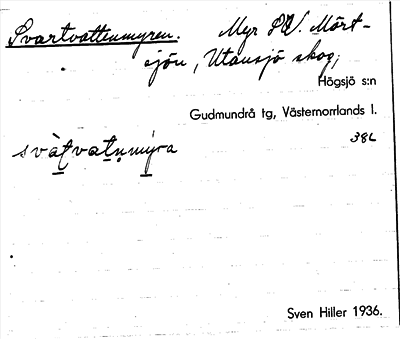 Svartvattenmyren. Myr SV. Mört-
sjön, Utansjö skog,
Högsjö s:n
Gudmundrå tg, Västernorrlands l.
38L
svàt̲vat̲n̥mýra
Sven Hiller 1936.